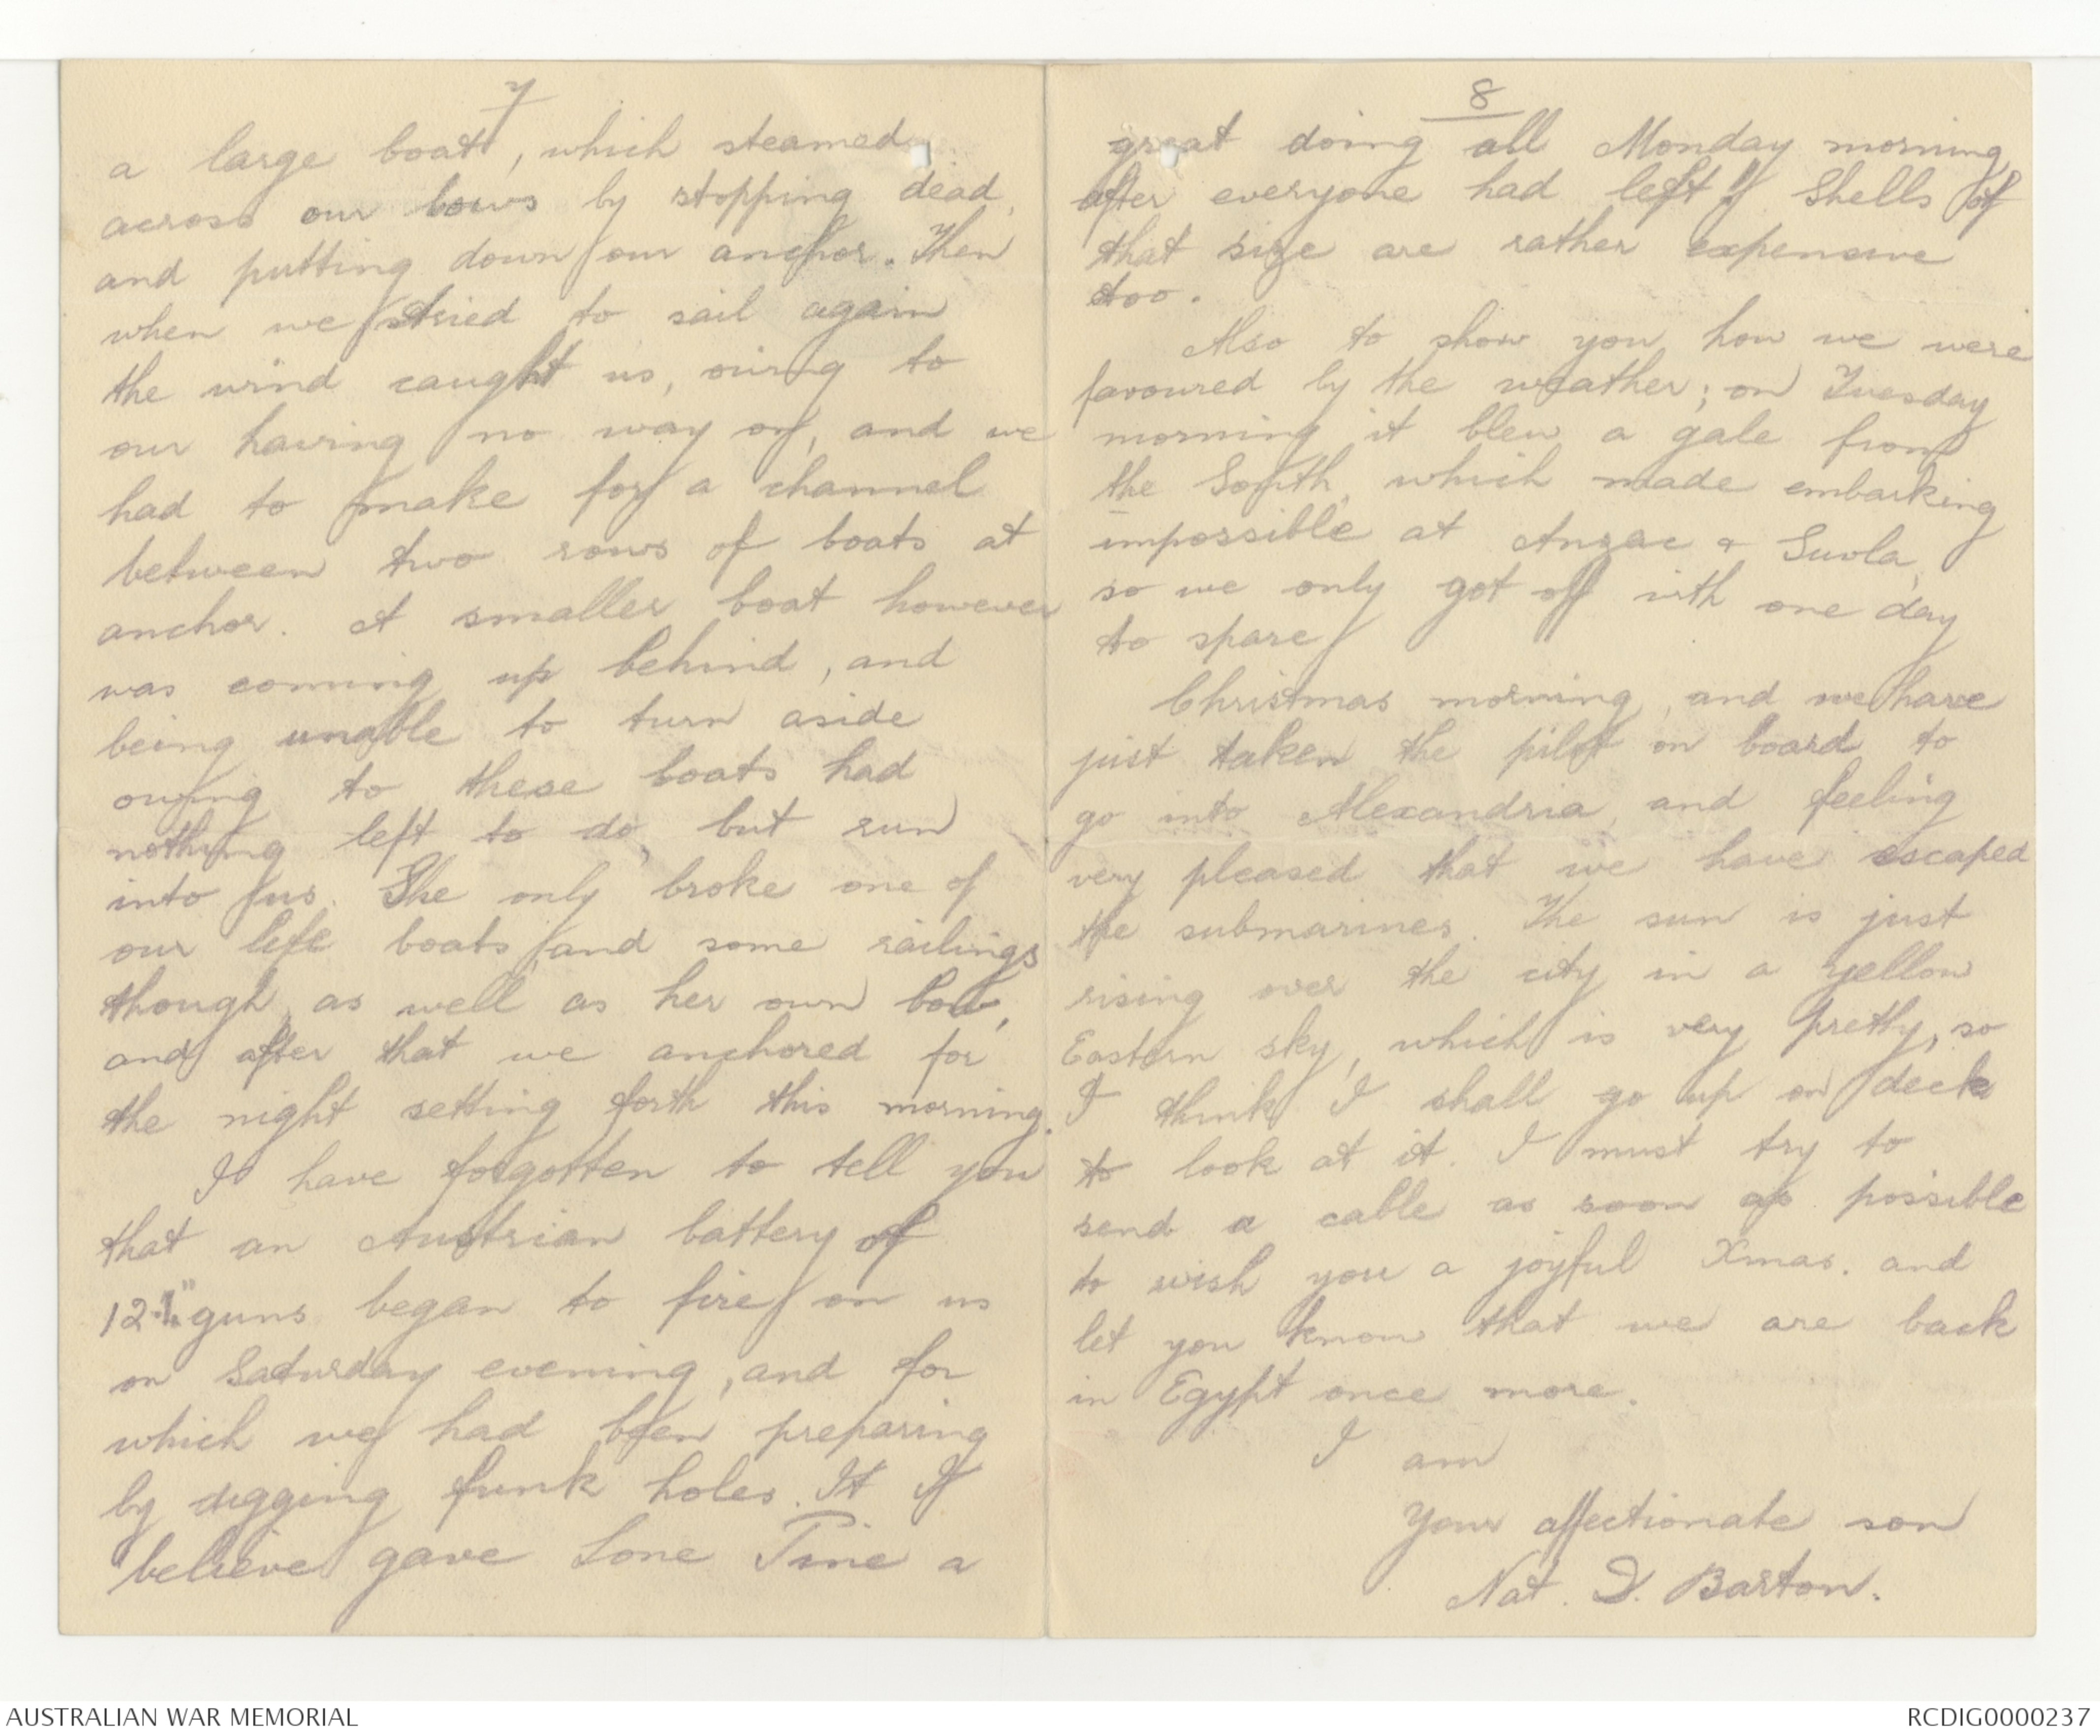 7
a large boat, which steamed
across our bows by stopping dead,
and putting down our anchor. Then
when we tried to sail again
the wind caught us, owing to
our having no way on, and we
had to make for a channel
between two rows of boats at
anchor. A smaller boat however
was coming up behind, and
being unable to turn aside
owing to these boats had
nothing left to do, but run
into us. She only broke one of
our life boats and some railings
though, as well as her own bow,
and after that we anchored for
the night setting forth this morning.
I have forgotten to tell you
that an Austrian battery of
guns began to fire on us
on Saturday evening, and for
which we had been preparing
by digging funk holes. It I
believe gave Lone Pine a
8
great doing all Monday morning
after everyone had left!! Shells of
that size are rather expensive
too.
Also to show you how we were
favoured by the weather; on Tuesday
morning it blew a gale from
the South, which made embarking
impossible at Anzac & Suvla,
so we only got off with one day
to spare
Christmas morning, and we have
just taken the pilot on board to
go into Alexandria, and feeling
very pleased that we have escaped
the submarines. The sun is just
rising over the city in a yellow
Eastern sky, which is very pretty, so
I think I shall go up on deck
to look at it. I must try to
send a cable as soon as possible
to wish you a joyful Xmas. and
let you know that we are back
in Egypt once more.
I am
Your affectionate son
Nat. D. Barton.
AUSTRALIAN WAR MEMORIAL
RCDIG0000237